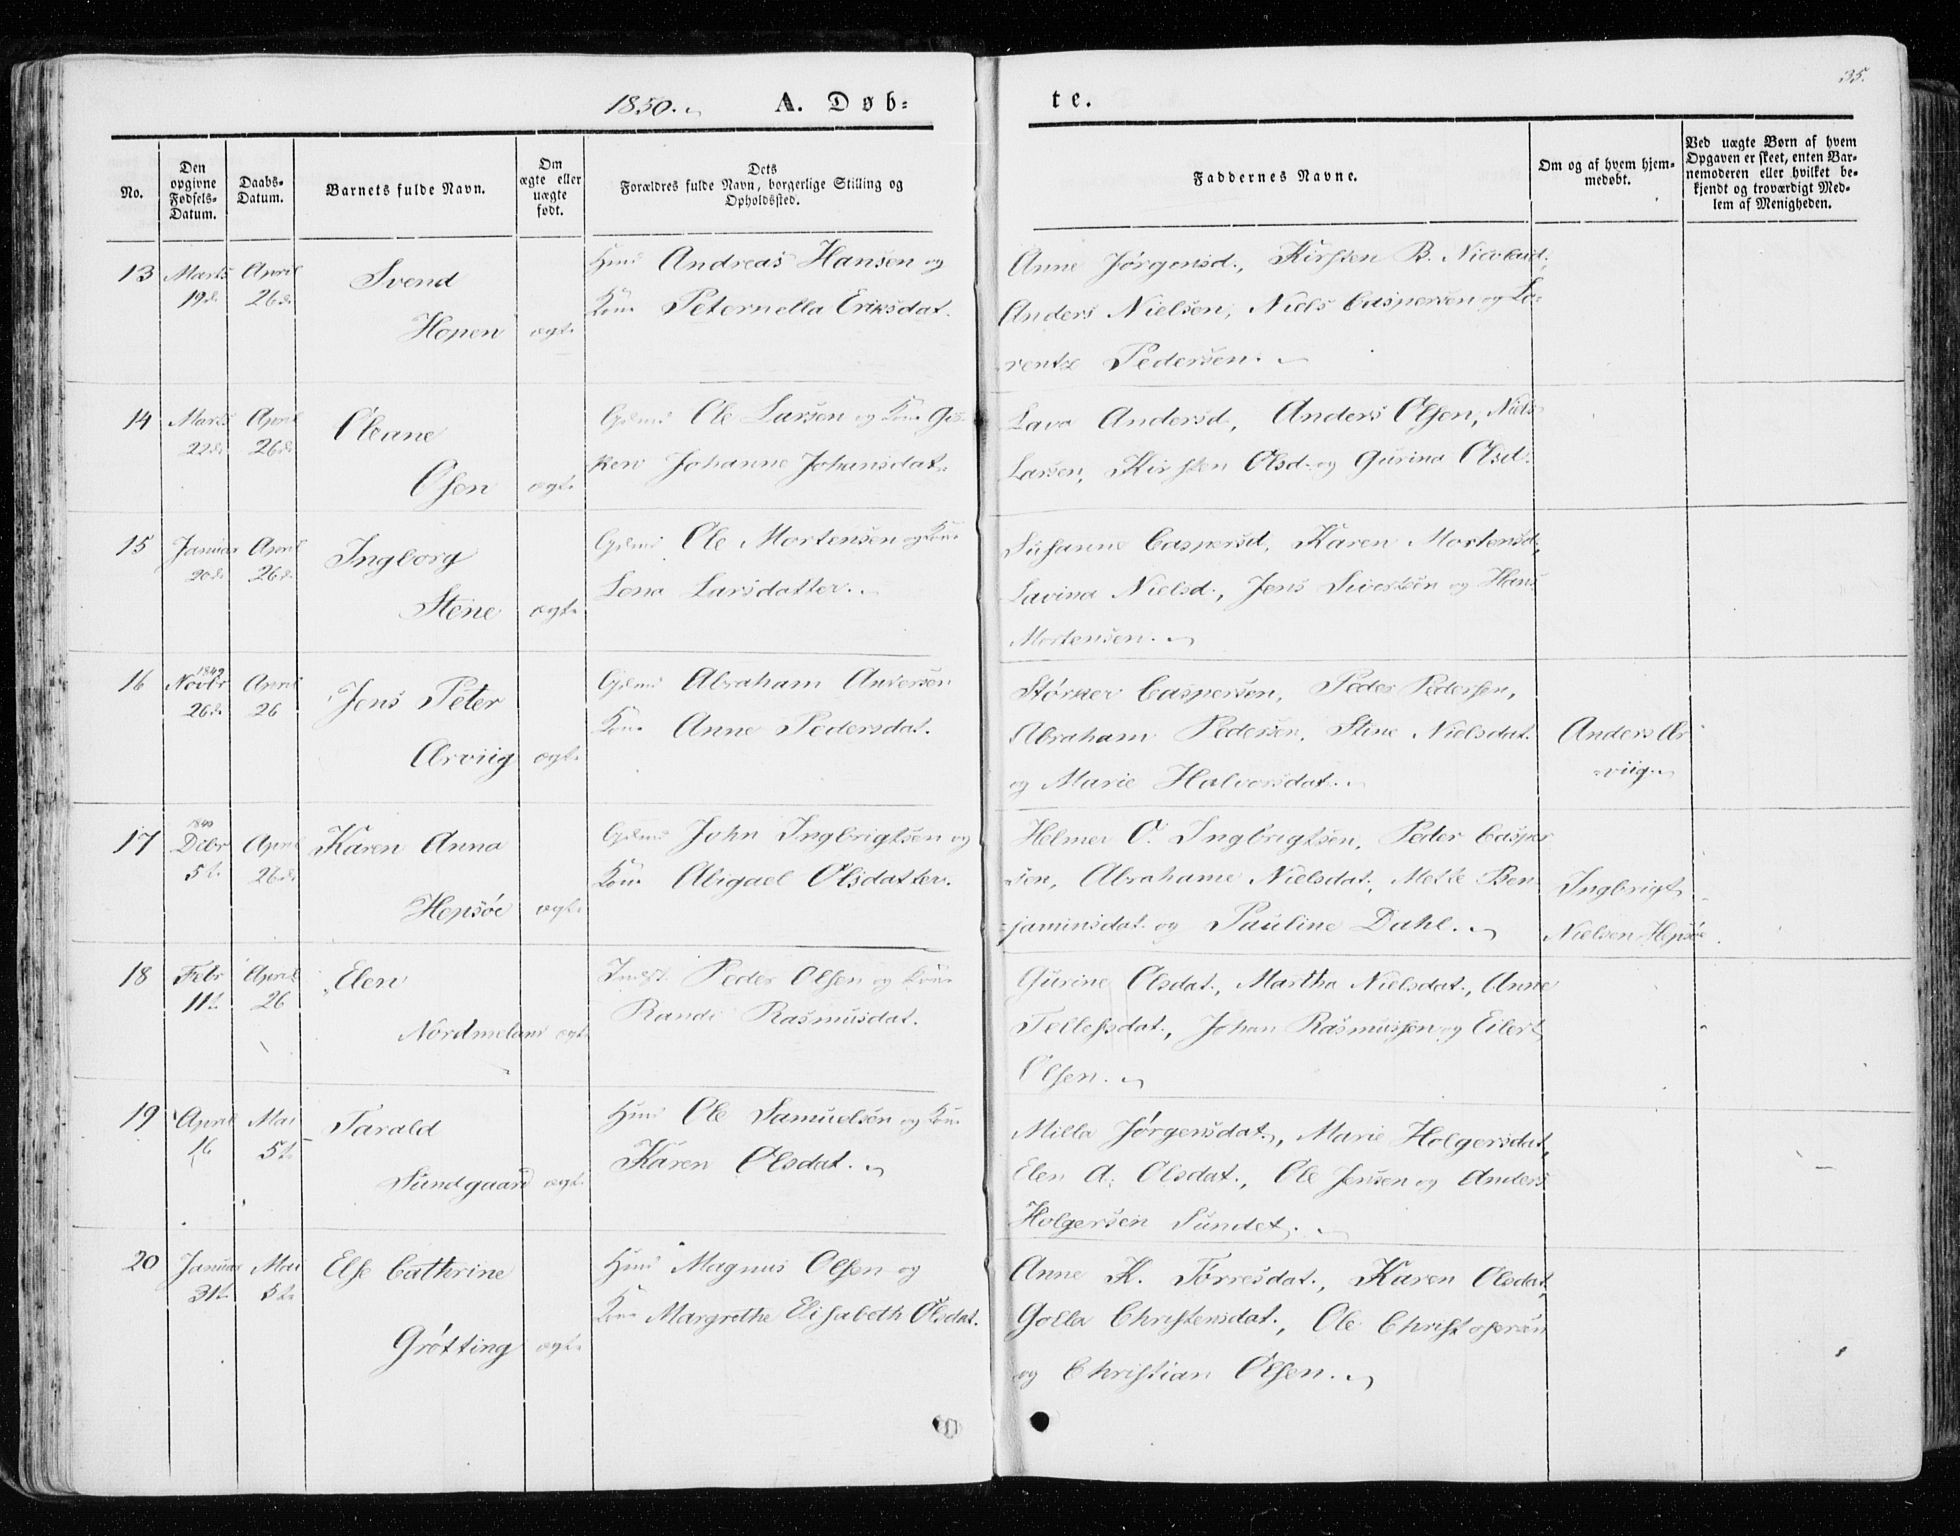 35.
1850. A. Døb=
te.
No.
Den opgivne Fødsels-Datum.
Daabs-Datum.
Barnets fulde Navn.
Om ægte eller uægte født.
Dets Forældres fulde Navn, borgerlige Stilling og Opholdssted.
Faddernes Navne.
Om og af hvem hjemmedøbt.
Ved uægte Børn af hvem Opgaven er skeet, enten Barnemoderen eller hvilket bekjendt og troværdigt Medlem af Menigheden.
13 Marts April Svend Andreas Hansen og
19d. 26d. Hopen ægt. Kone Peternella Eriksdat.
Anne Jørgensd., Kirsten B.
Anders Nielsen, Niels Caspersen og La-
rentze Pedersen.
14 Marts April Oleane Gdmd Ole Larsen og Kone
22d. 26d. Osen ægt. Johanne Johansdat.
Lava Andersd, Anders Olsen, Niels
Larsen, Kirsten Olsd. og Gurina Olsd.
15 Januar April Ingborg Gdmd Ole Mortensen og Kone
20d. 26d. Stene ægt. Lena Larsdatter.
Susanne Caspersd, Karen Mortensd,
Lavina Nielsd., Jens Sivertsen og Hans
Mortensen.
16 1849 Novbr April Jens Peter Gdmd Abraham Andersen
26d. 26 Arviig ægt. Kone Anne Pedersdat.
Størker Caspersen, Peder Pedersen,
Abraham Pedersen, Stine Nielsdat. Anders Ar-
og Marie Halvorsdat. viig.
17 Dcbr April Karen Anna Gdmd John Ingbrigtsen og
5t. 26d. Hepsøe ægt. Kone Abigael Olsdatter.
Helmer O. Ingbrigtsen, Peder Casper-
sen, Abrahame Nielsdat, Mette Ben- Ingbrigt
jaminsdat og Pauline Dahl. Nielsen Hepsøe
18 Febr April Elen Indst. Peder Olsen og Kone
11t. 26 Nordmeland ægt. Randi Rasmusdat.
Gurine Olsdat., Martha Nielsdat., Anne
Tellefsdat., Johan Rasmussen og Eilert
Olsen.
19 April Mai Tarald Ole Samuelsen og Kone
16 5t. Sundgaard ægt. Karen Olsdat.
Milla Jørgensdat., Marie Holgersdat,
Elen A. Olsdat., Ole Jensen og Anders
Holgersen Sundet.
20 Januar Mai Else Cathrine Magnus Olsen og
31t. 5t. Grøtting ægt. Kone Margrethe Elisabeth Olsdat.
Anne K. Torresdat., Karen Olsdat,
Golla Christensdat., Ole Christofersen
og Christian Olsen.